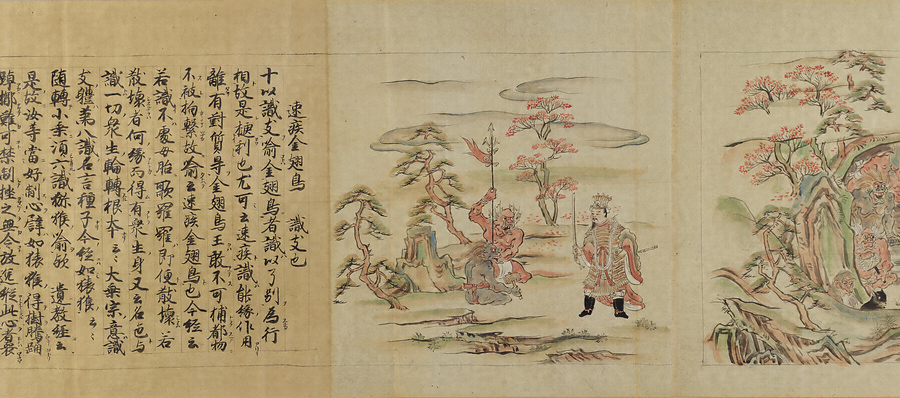 速疾金翅鳥 識支也
十以識支喩金翅鳥者識以了別為行
相故是硬利也尤可云速疾識能縁作用
離有對質导金翅鳥王敢不可捕都物
不被拘繋故喩云速疾金翅鳥也今經云
若識不處母胎歌羅羅即便散壊若
散壊者何縁而得有衆生身又云名色与
識一切衆生輪轉根本云々大乗宗意識
支體第八識名言種子今經如猿猴云々
随轉小乗頂六識猕猴喩歟 遺教経云
是故汝等當好制心譬如猿猴得樹騰踊
踔擲難可禁制挫之無令放逸縦此心者喪